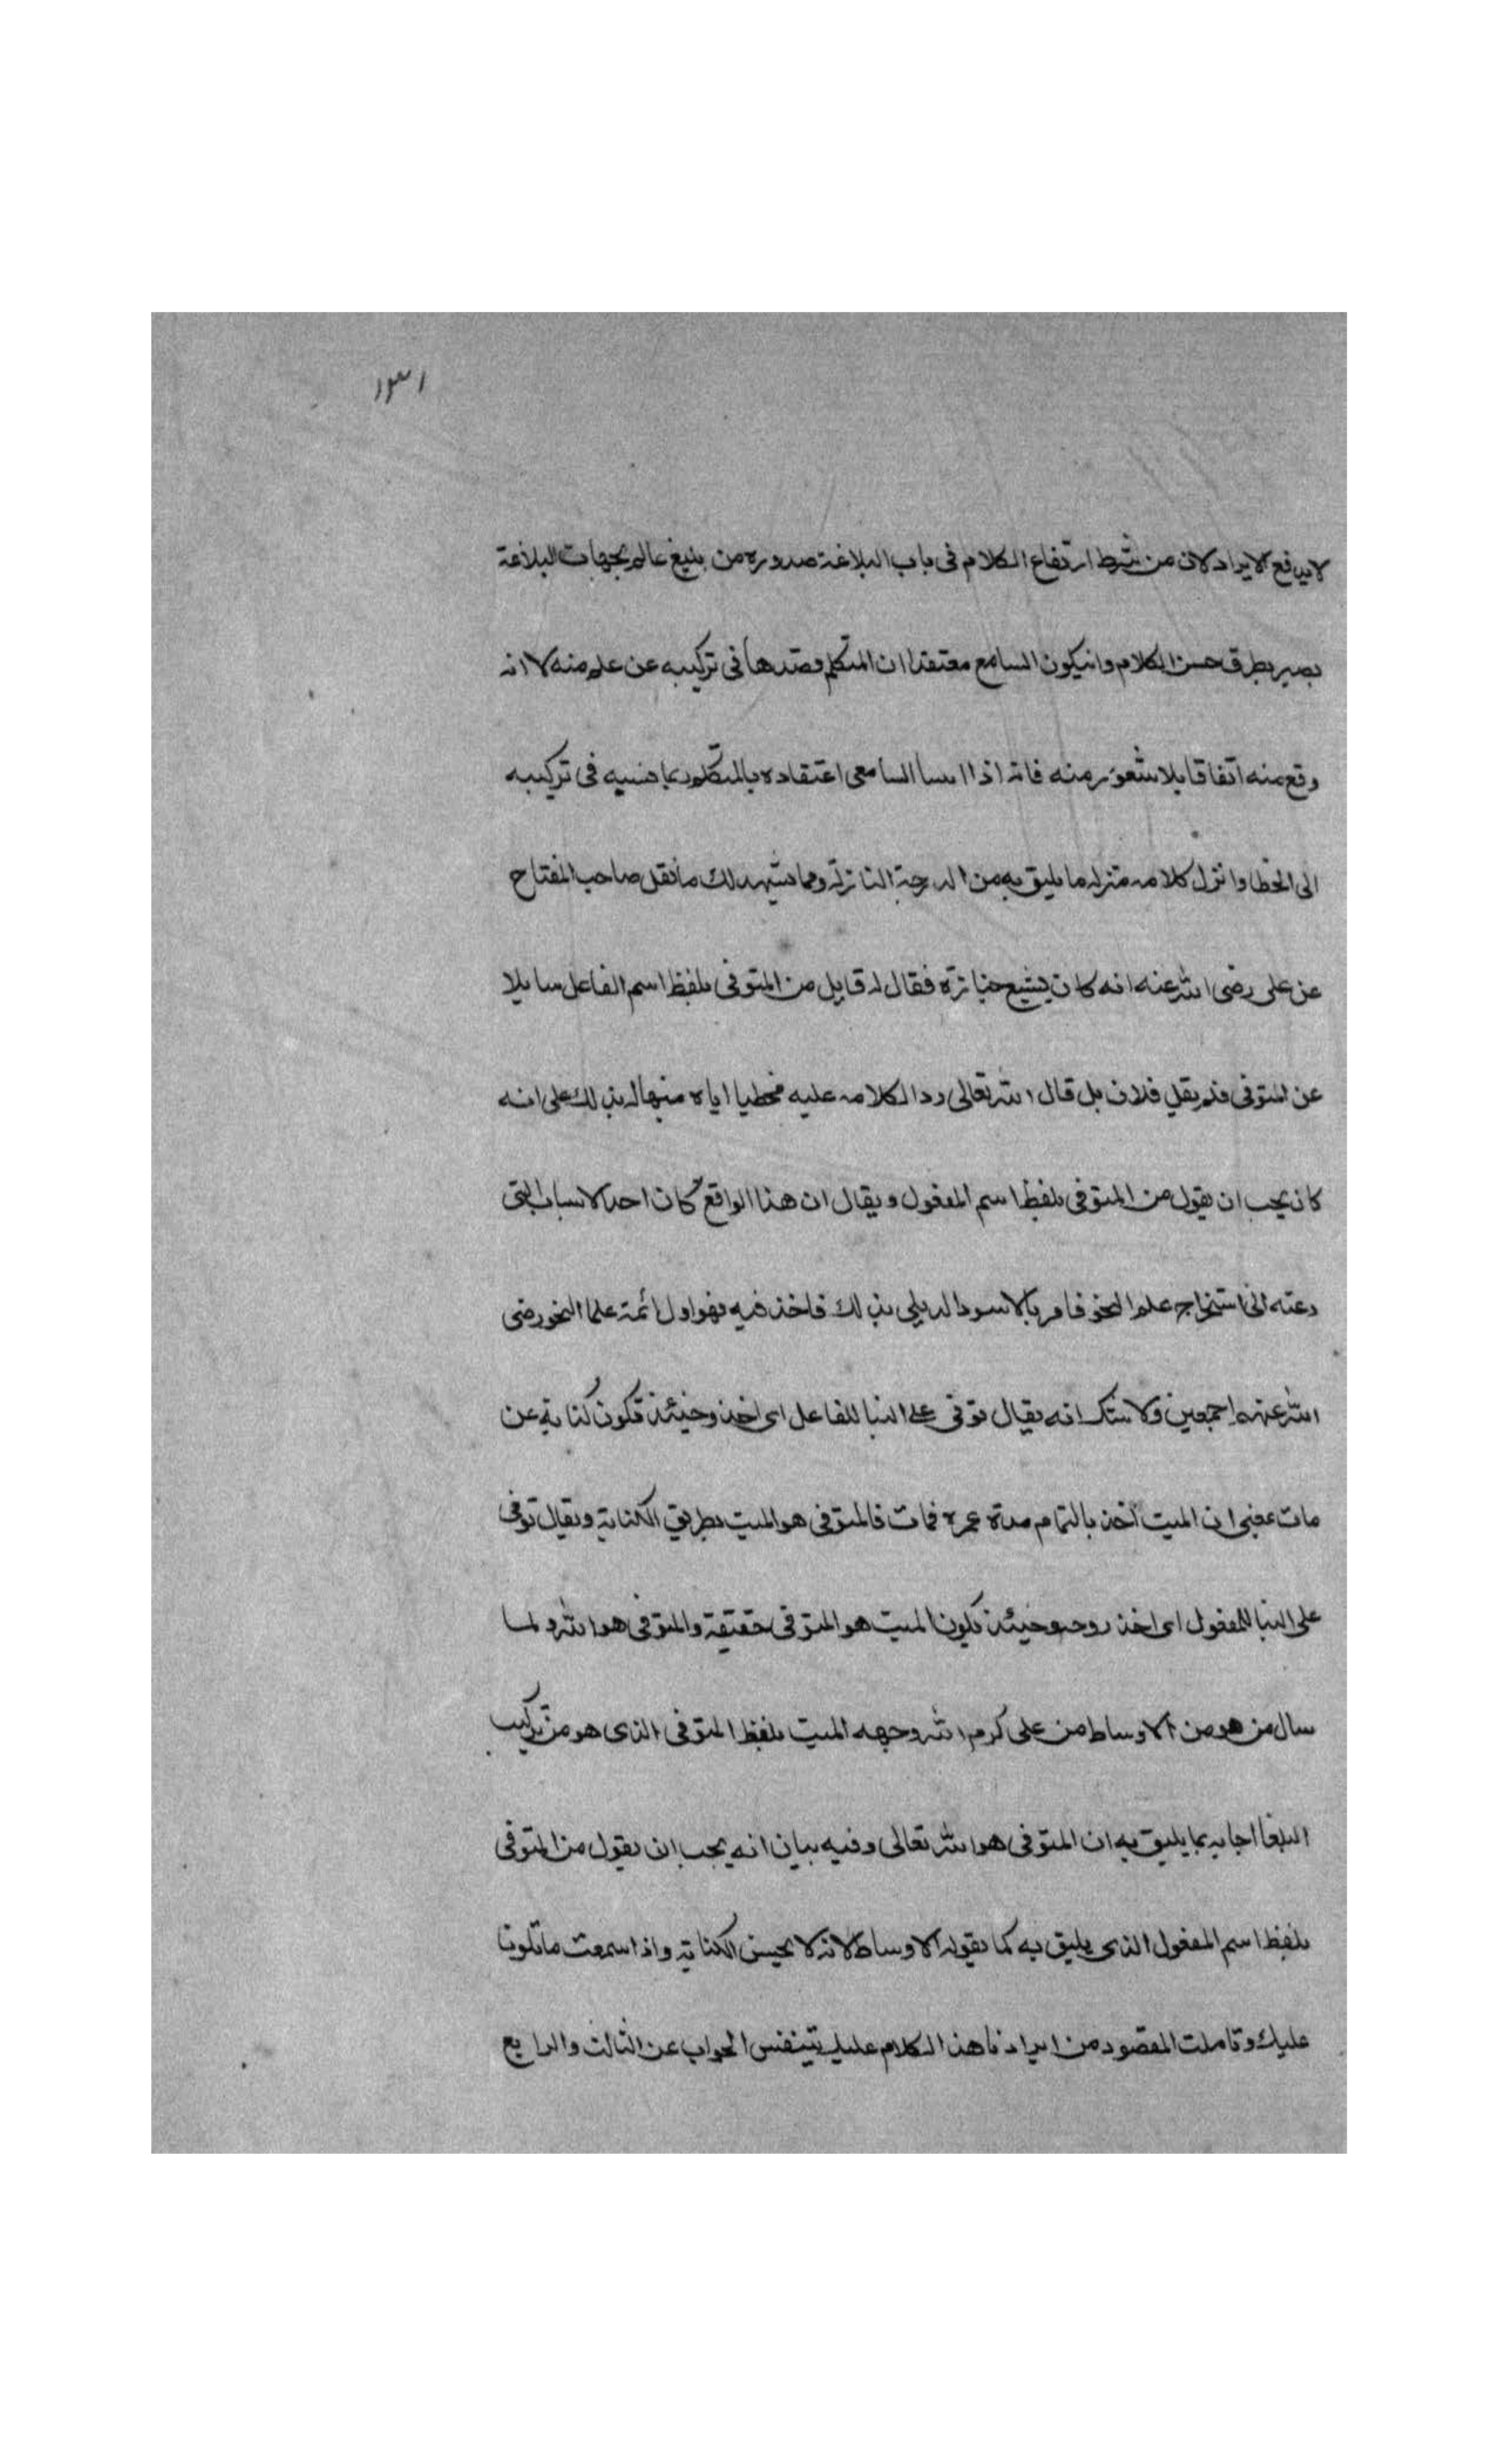 ١٣١
لا يدفع الايراد لان من شرط ارتفاع الكلام فى باب البلاغة صدوره من بليغ عالم بجهات البلاغة
بصير بطرق حسن الكلام وان يكون السامع معتقدا ان المتكلم قصدها فى تركيبه عن علم منه لا انه
وقع منه اتفاقا بلا شعور منه فانه اذا اسا السامع اعتقاده بالمتكلم ربما نسبه فى تركيبه
الى الخطا وانزل كلامه منزله ما يليق به من الدرجة النازلة ومما يشهد لك ما نقل صاحب المفتاح
عن على رضى الله عنه انه كان يشيع جنازة فقال له قايل من المتوفى بلفظ اسم الفاعل سايلا
عن المتوفى فلم يقل فلان بل قال الله تعالى ردا لكلامه عليه مخطيا اياه منبها له بذلك على انه
كان يجب ان يقول من المتوفى بلفظ اسم المفعول ويقال ان هذا الواقع كان احد الاسباب التى
دعته الى استخراج علم النحو فامر ابا الاسود الديلى بذلك فاخذ فيه فهو اول ائمة علما النحو رضى
الله عنهم اجمعين ولا شك انه يقال توفى على البنا للفاعل اى اخذ وحينئذ تكون كناية عن
مات بمعنى ان الميت اخذ بالتمام مدة عمره فمات فالمتوفى هو الميت بطريق الكناية ويقال توفى
على البنا للمفعول اى اخذ روحه وحينئذ يكون الميت هو المتوفى حقيقة والمتوفى هو الله ولما
سال من هو من الاوساط من على كرم الله وجهه الميت بلفظ المتوفى الذى هو من تركيب
البلغا اجابه بما يليق به ان المتوفى هو الله تعالى وفيه بيان انه يجب ان يقول من المتوفى
بلفظ اسم المفعول الذى يليق به كما يقوله الاوساط لانه لا يحسن الكناية واذا سمعت ما تلونا
عليك وتاملت المقصود من ايرادنا هذا الكلام عليك الجواب عن الثالث والرابع